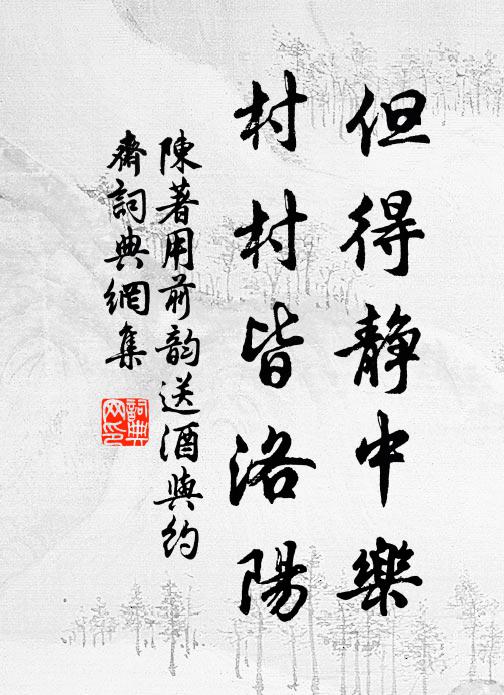 但得静中樂
村村皆洛陽
陳著用前韵送酒與約
齋詞典網集
詞典網印